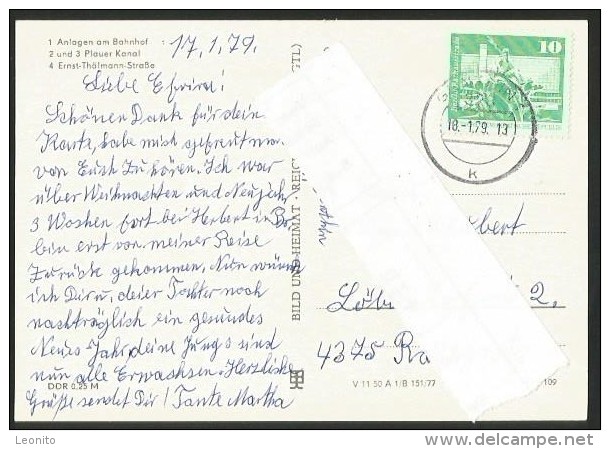 1 Anlagen am Bahnhof
2 und 3 Plauer Kanal
4 Ernst-Thälmann-Straße
17.1.79.
Liebe
Schönen Dank für dein
Karte, habe mich gefreut
von Euch zu hören. Ich war
über Weihnachten und Neujahr
3 Wochen fort bei Herbert in
bin erst von meiner Reise
zurück gekommen. Nun wünsch
ich Dir u. deiner Tochter noch
nachträglich ein gesundes
Neues Jahr, deine Jungs sind
nun alle Erwachsen. Herzliche
Grüße sendet Dir! Tante Martha
DDR 0,25 M
BILD UND HEIMAT · REIC
GTL)
10
18.-1.79. 13
k
bert
Löb
2.
4375 Ra
V 11 50 A 1/B 151/77
109
Leonito
delcampe.net